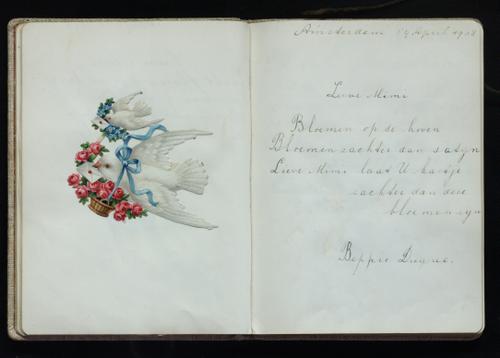 Amsterdam 19 April 1918
Lieve Mimi
Bloemen op de hoven
Bloemen zachter dan satyn
Lieve Mimi laat U hartje
zachter dan deze
bloemen zyn
Beppie